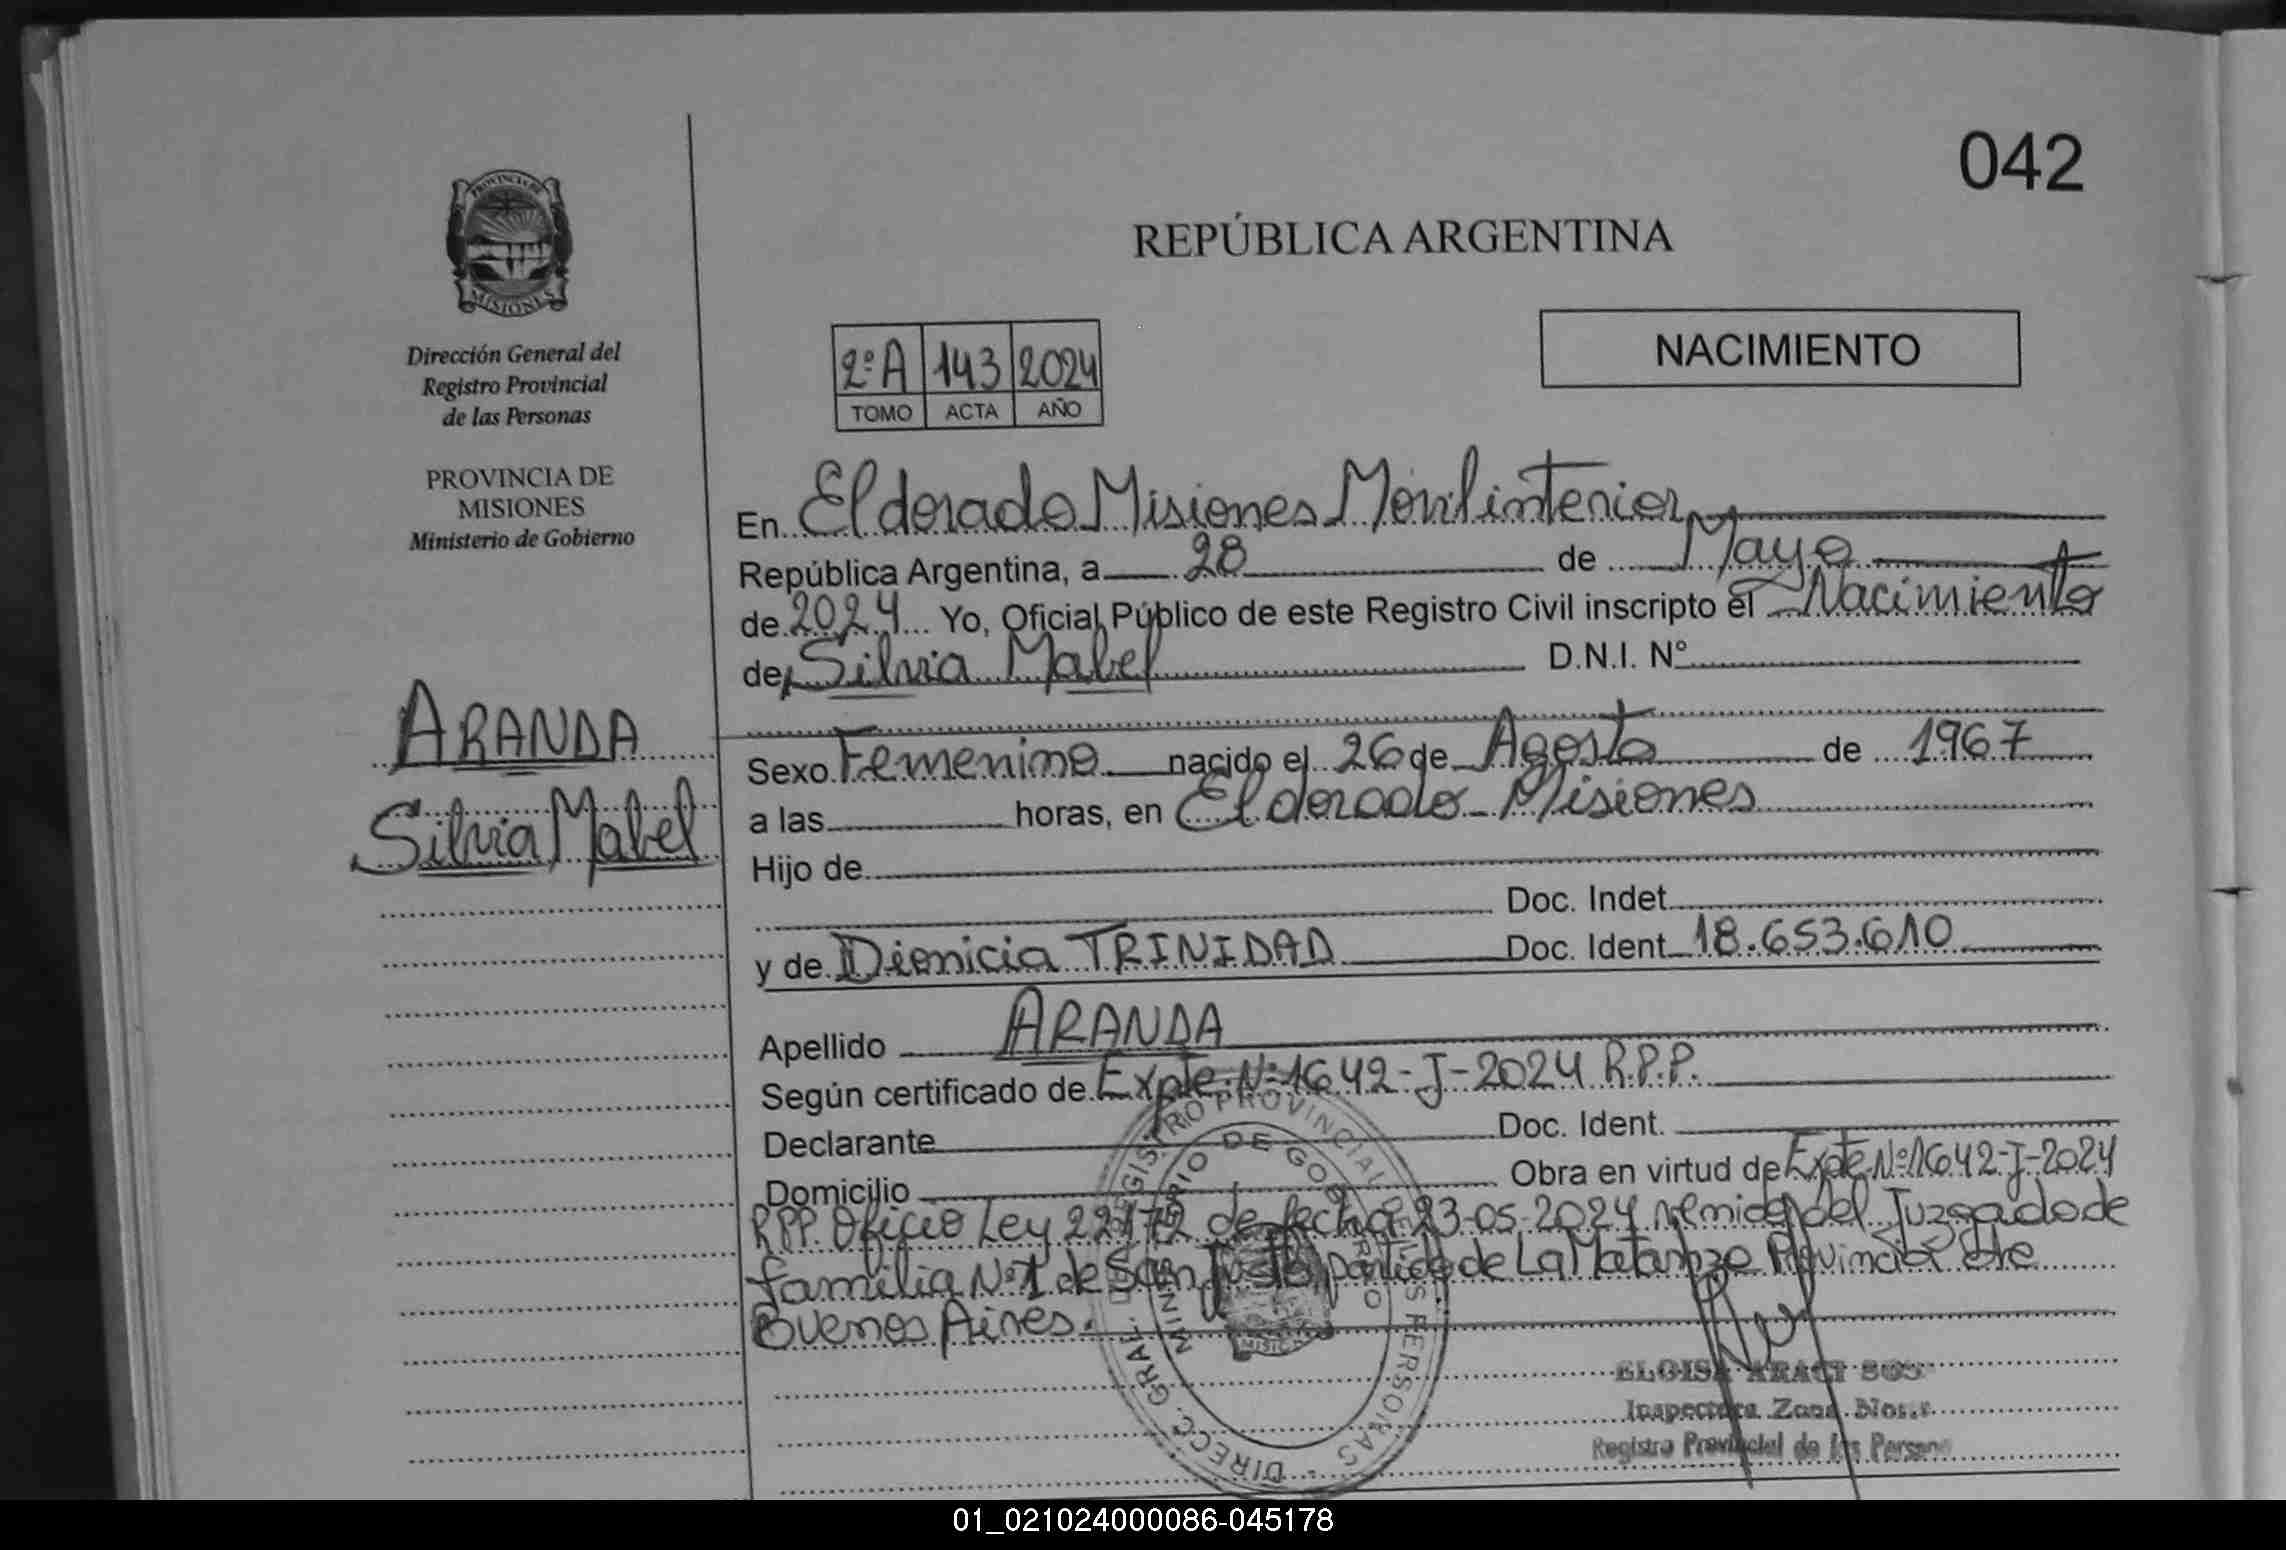 042
PROVINCIA DE
MISIONES
Dirección General del
Registro Provincial
de las Personas
PROVINCIA DE
MISIONES
Ministerio de Gobierno
REPÚBLICA ARGENTINA
2º A 143 2024
TOMO ACTA AÑO
NACIMIENTO
En Eldorado Misiones Movil interior
República Argentina, a 28 de Mayo
de 2024 Yo, Oficial Público de este Registro Civil inscripto el Nacimiento
de Silvia Mabel D.N.I. Nº
ARANDA
Silvia Mabel
Sexo Femenino nacido el 26 de Agosto de 1967
a las horas, en Eldorado Misiones
Hijo de
Doc. Indet.
y de Dionicia TRINIDAD Doc. Ident. 18.653.610
Apellido ARANDA
Según certificado de Expte. Nº 1642-J-2024 R.P.P.
Declarante Doc. Ident.
Domicilio Obra en virtud de Expte Nº 1642-J-2024
RPP. Oficio Ley 22172 de fecha 23-05-2024 del Juzgado de
familia Nº 1 de San Justo partido de La Matanza Provincia de
Buenos Aires.
DIRECC. GRAL. DEL REGISTRO PROVINCIAL DE LAS PERSONAS
MINISTERIO DE GOBIERNO
MISIONES
ELOISA
Inspectora Zona
Registro Provincial de las Personas
01_021024000086-045178